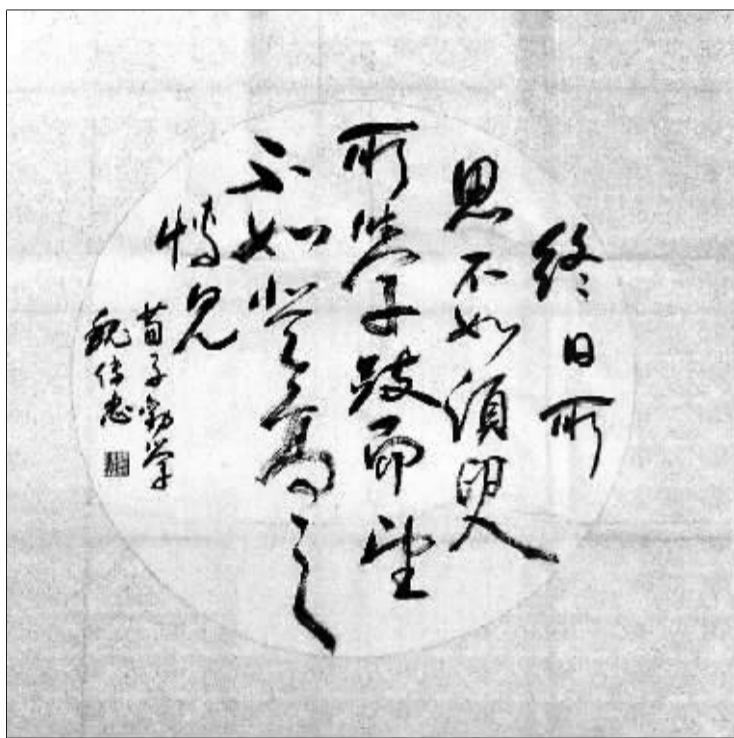 終日所
思不如須臾
所學跂而望
不如登高之
博見
荀子勸學
魏傳忠